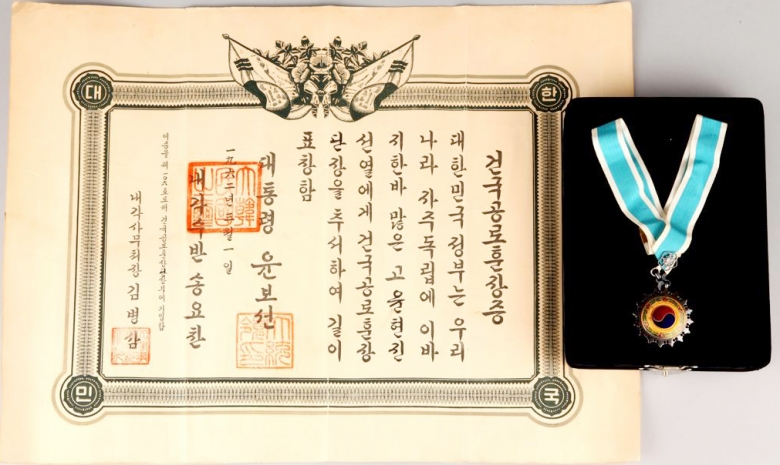 대
한
건국공로훈장증
대한민국 정부는 우리
나라 자주독립에 이바
지한바 많은 고 윤현진
선열에게 건국공로훈장
단장을 추서하여 길이
표창함
一九六二년 三월 一일
대통령 윤보선
내각수반 송요찬
내각사무처장 김병삼
민
국